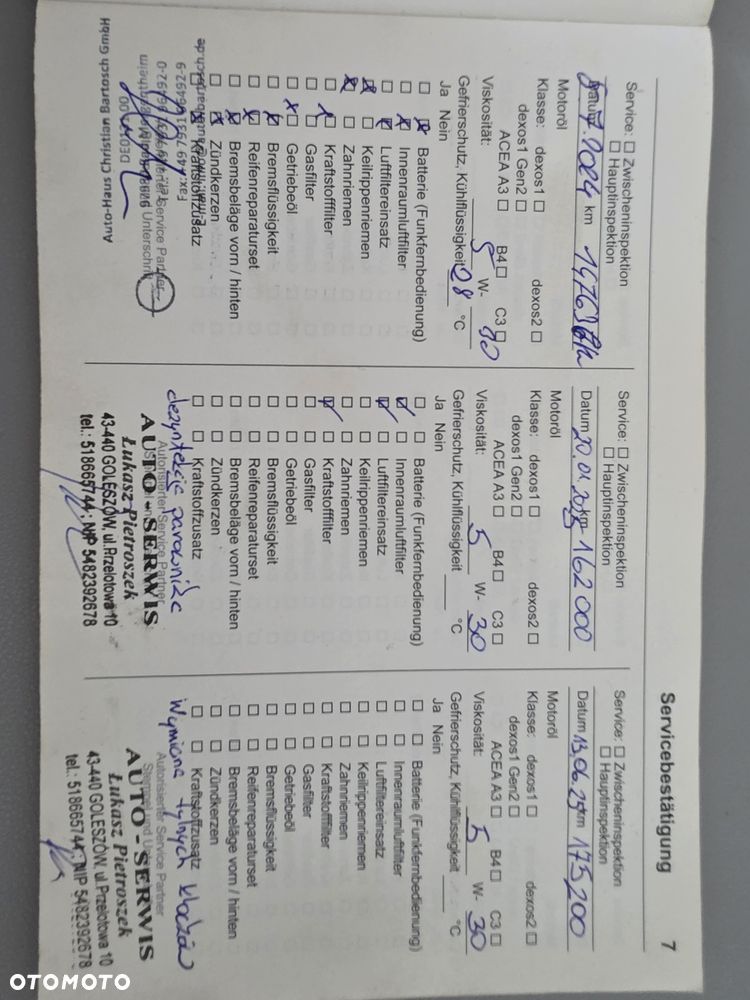 Servicebestätigung 7
Service: ☐ Zwischeninspektion
☐ Hauptinspektion
km
Motoröl
Klasse: dexos1 ☐ dexos2 ☐
dexos1 Gen2 ☐
ACEA A3 ☐ B4 ☐ C3 ☐
Viskosität: 5 W-
Gefrierschutz, Kühlflüssigkeit °C
Ja Nein
Batterie (Funkfernbedienung)
Innenraumluftfilter
Luftfiltereinsatz
Keilrippenriemen
Zahnriemen
Kraftstofffilter
Gasfilter
Getriebeöl
Bremsflüssigkeit
Reifenreparaturset
Bremsbeläge vorn / hinten
Zündkerzen
Kraftstoffzusatz
Auto-Haus Christian Bartosch GmbH
Service: ☐ Zwischeninspektion
☐ Hauptinspektion
Datum km 162 000
Motoröl
Klasse: dexos1 ☐ dexos2 ☐
dexos1 Gen2 ☐
ACEA A3 ☐ B4 ☐ C3 ☐
Viskosität: 5 W- 30
Gefrierschutz, Kühlflüssigkeit °C
Ja Nein
☐ ☐ Batterie (Funkfernbedienung)
☑ ☐ Innenraumluftfilter
☑ ☐ Luftfiltereinsatz
☐ ☐ Keilrippenriemen
☐ ☐ Zahnriemen
☑ ☐ Kraftstofffilter
☐ ☐ Gasfilter
☐ ☐ Getriebeöl
☐ ☐ Bremsflüssigkeit
☐ ☐ Reifenreparaturset
☐ ☐ Bremsbeläge vorn / hinten
☐ ☐ Zündkerzen
☐ ☐ Kraftstoffzusatz
Autorisierter Service Partner
AUTO-SERWIS
Łukasz Pietroszek
43-440 GOLESZÓW, ul.Przelotowa 10
tel.: 518665744; NIP 5482392678
Service: ☐ Zwischeninspektion
☐ Hauptinspektion
Datum 13.06.25 km 175200
Motoröl
Klasse: dexos1 ☐ dexos2 ☐
dexos1 Gen2 ☐
ACEA A3 ☐ B4 ☐ C3 ☐
Viskosität: 5 W- 30
Gefrierschutz, Kühlflüssigkeit °C
Ja Nein
☐ ☐ Batterie (Funkfernbedienung)
☐ ☐ Innenraumluftfilter
☐ ☐ Luftfiltereinsatz
☐ ☐ Keilrippenriemen
☐ ☐ Zahnriemen
☐ ☐ Kraftstofffilter
☐ ☐ Gasfilter
☐ ☐ Getriebeöl
☐ ☐ Bremsflüssigkeit
☐ ☐ Reifenreparaturset
☐ ☐ Bremsbeläge vorn / hinten
☐ ☐ Zündkerzen
☐ ☐ Kraftstoffzusatz
Wymiana tylnych klocków
Autorisierter Service Partner
AUTO-SERWIS
Łukasz Pietroszek
43-440 GOLESZÓW, ul.Przelotowa 10
tel.: 518665744; NIP 5482392678
OTOMOTO